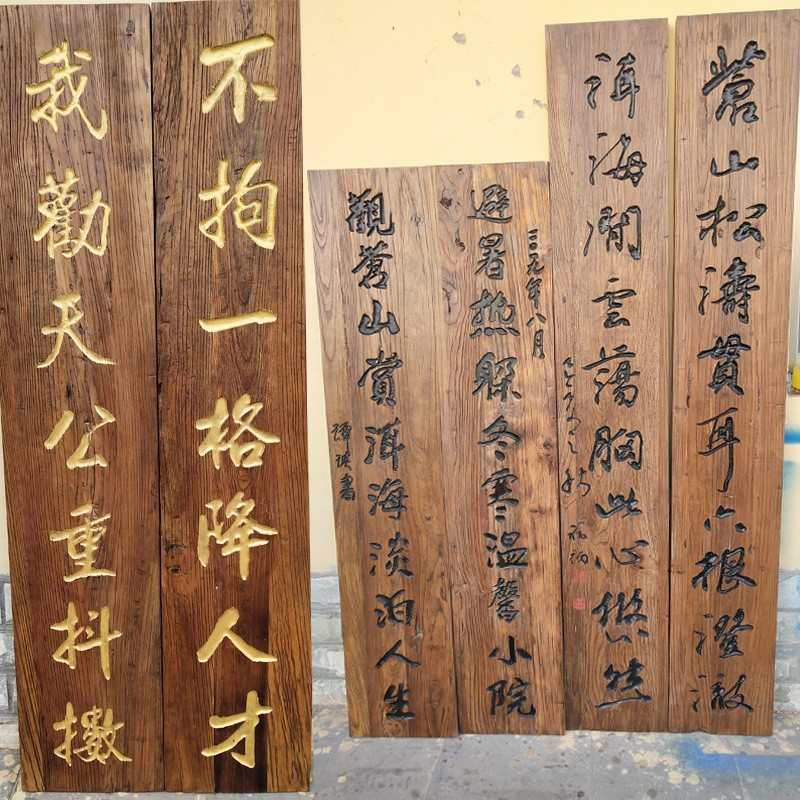 我勸天公重抖擻
不拘一格降人才
蒼山松濤貫耳六根澄澈
洱海閒雲蕩胸此心悠然
避暑热躲冬寒温馨小院
二〇一九年八月
觀蒼山賞洱海淡泊人生